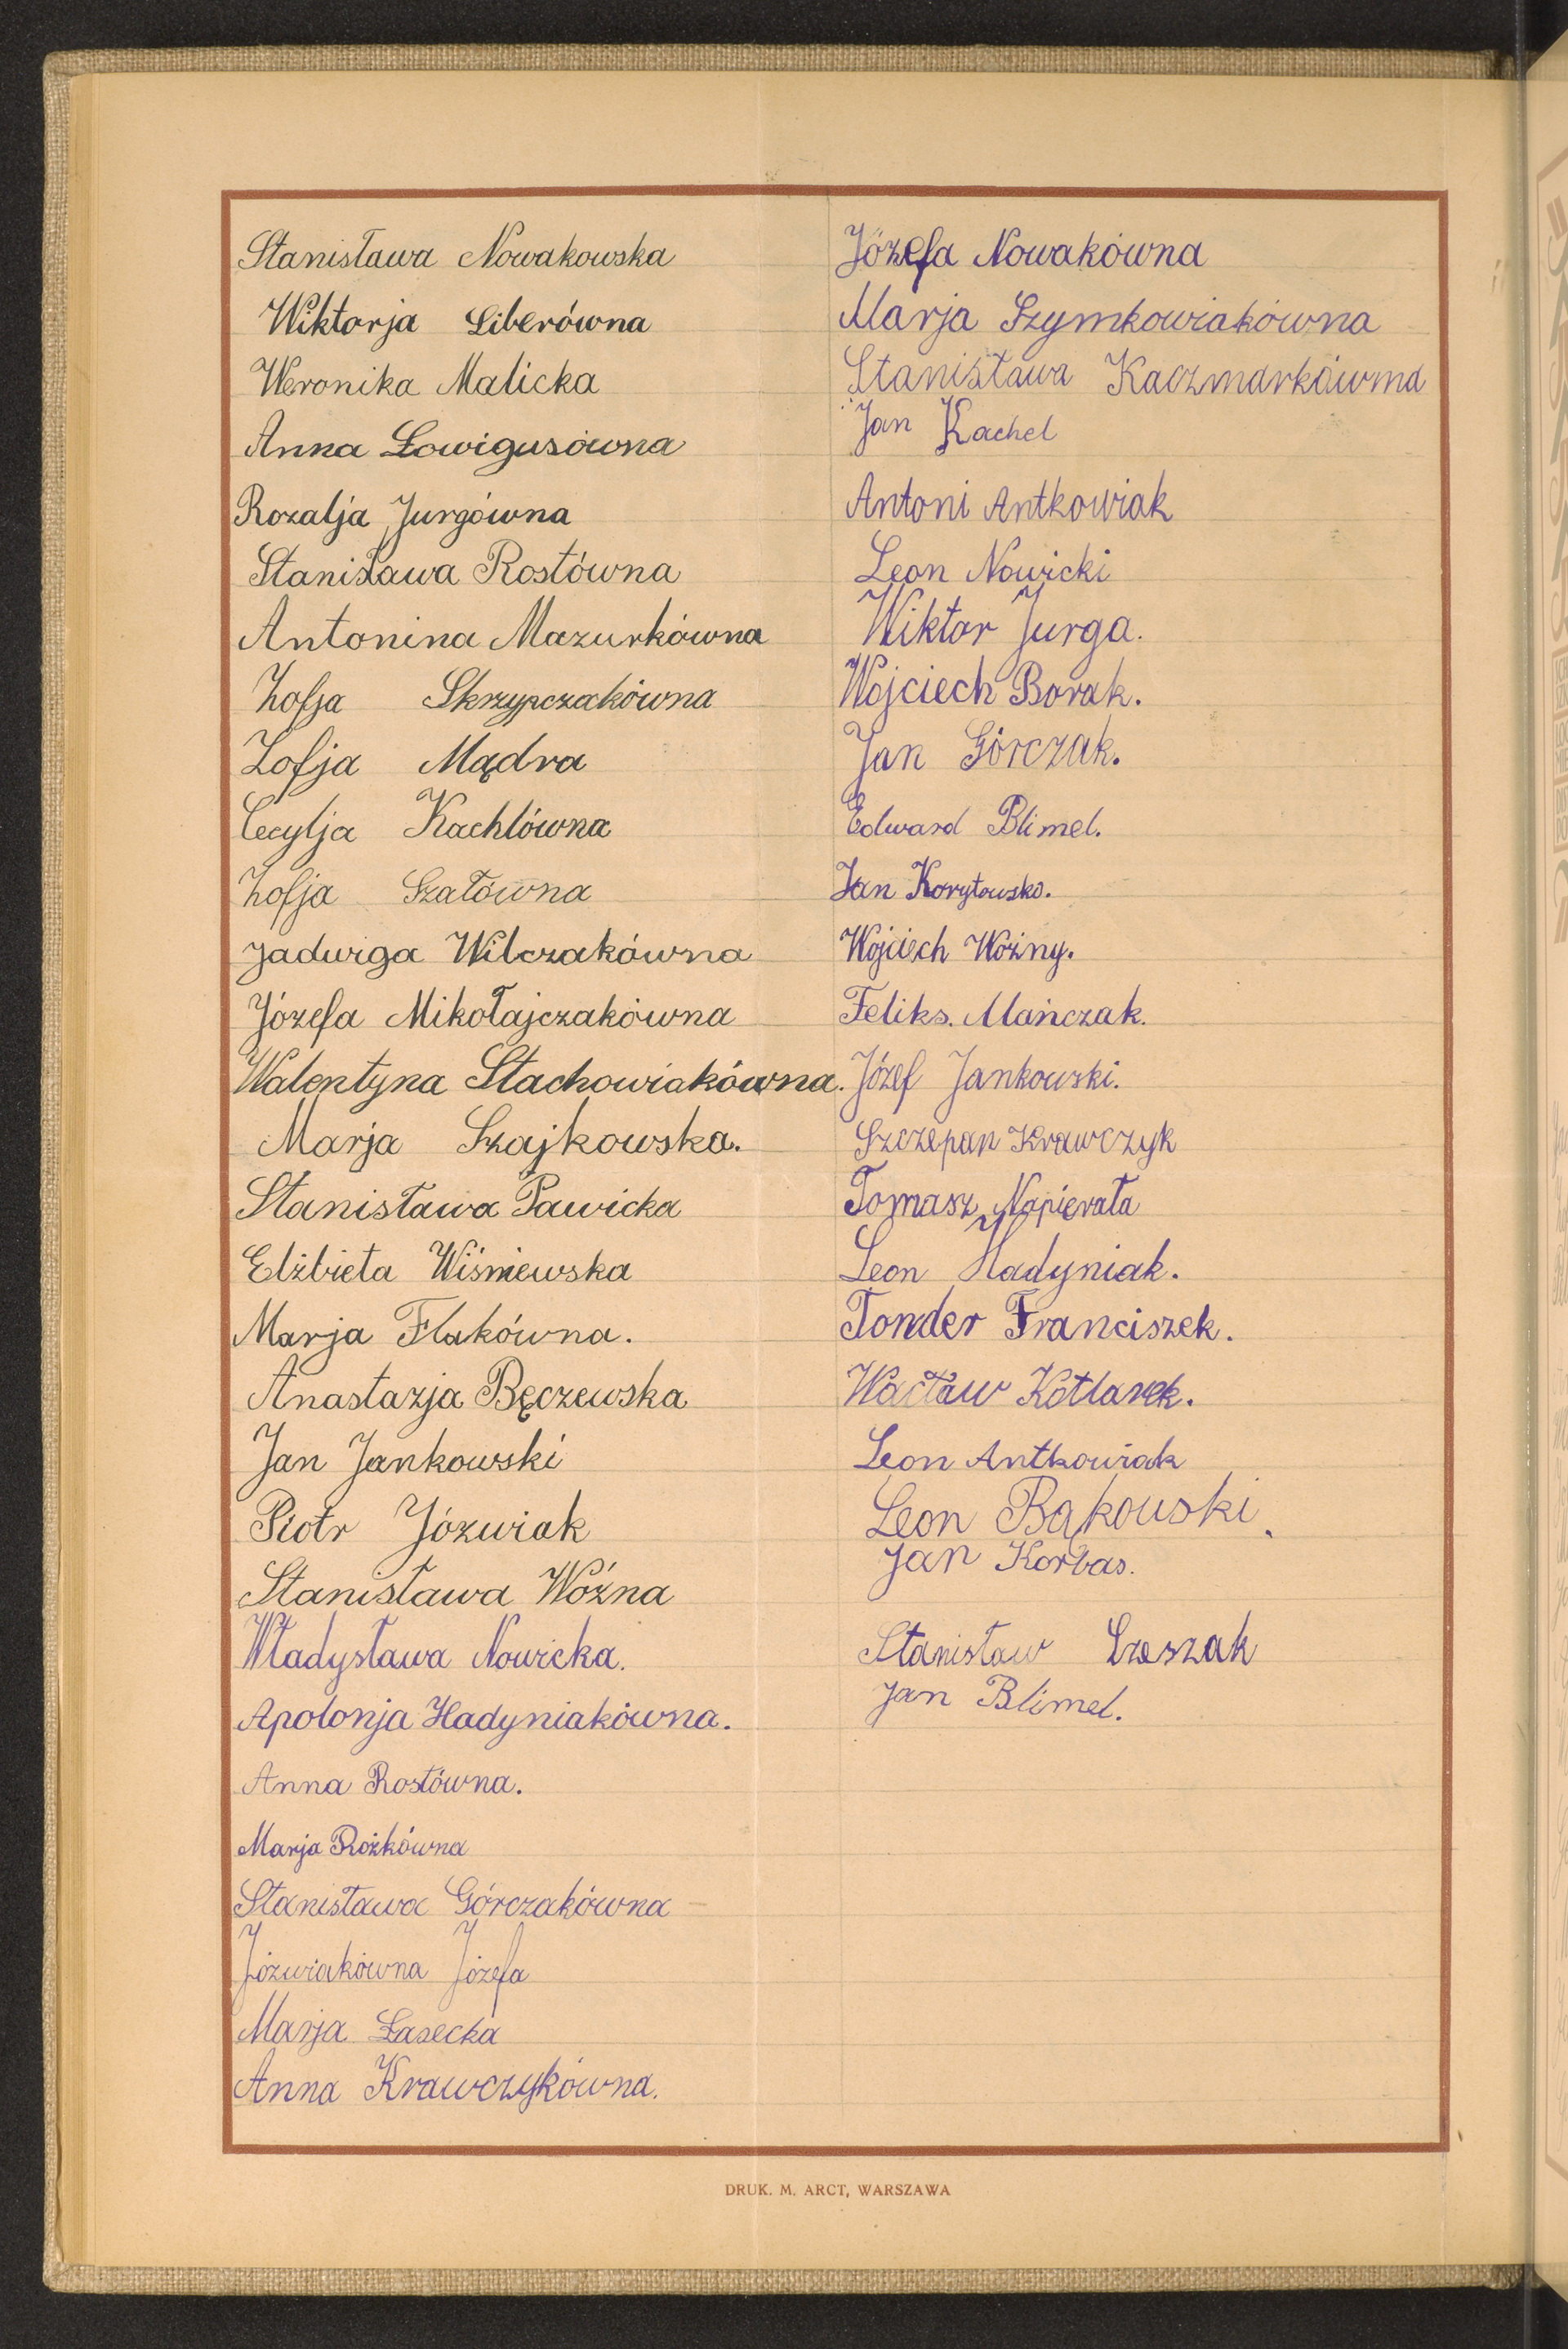 Stanisława Nowakowska
Wiktorja Liberówna
Weronika Malicka
Anna Łowigusówna
Rozalja Jurgówna
Stanisława Rostówna
Antonina Mazurkówna
Zofja Skrzypczakówna
Zofja Mądra
Cecylja Kachlówna
Zofja Szałówna
Jadwiga Wilczakówna
Józefa Mikołajczakówna
Walentyna Stachowiakówna.
Marja Szajkowska.
Stanisława Pawicka
Elżbieta Wiśniewska
Marja Flakówna.
Anastazja Bęczewska
Jan Jankowski
Piotr Józwiak
Stanisława Woźna
Władysława Nowicka.
Apolonja Hadyniakówna.
Anna Rostówna.
Marja Rożkówna
Stanisława Górczakówna
Józwiakówna Józefa
Marja Łasecka
Anna Krawczykówna.
Józefa Nowakówna
Marja Szymkowiakówna
Stanisława Kaczmarkówna
Jan Kachel
Antoni Antkowiak
Leon Nowicki
Wiktor Jurga.
Wojciech Borak.
Jan Górczak.
Edward Blimel.
Jan
Wojciech Woźny.
Feliks. Mańczak.
Józef Jankowski.
Szczepan Krawczyk
Tomasz Napierała
Leon Hadyniak.
Tonder Franciszek.
Wacław Kotlarek.
Leon Antkowiak
Leon Bąkowski.
Jan Korbas.
Stanisław
Jan Blimel.
DRUK. M. ARCT, WARSZAWA